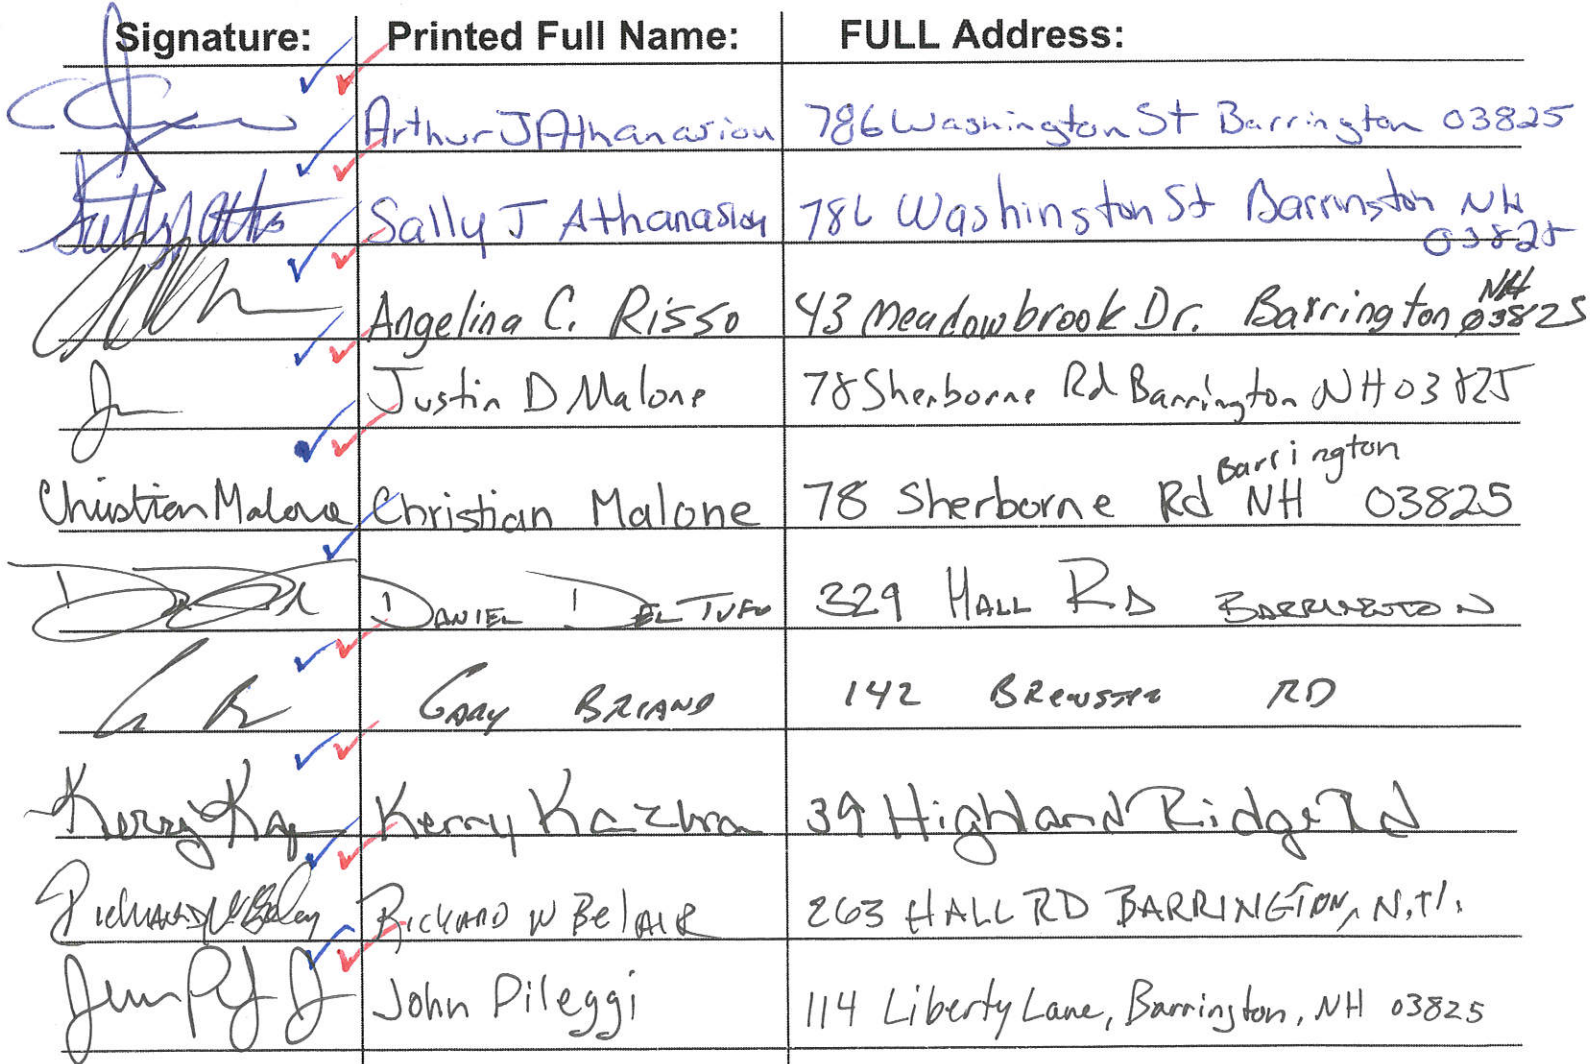 Signature: Printed Full Name: FULL Address:
Arthur J Athanasiou 786 Washington St Barrington 03825
Sally J Athanasiou 786 Washington St Barrington NH
03825
Angelina C. Risso 43 Meadowbrook Dr. Barrington NH 03825
Justin D Malone 78 Sherborne Rd Barrington NH 03825
Christian Malone Christian Malone 78 Sherborne Rd Barrington NH 03825
DANIEL DEL TUFO 329 HALL RD BARRINGTON
GARY BRIAND 142 BREWSTER RD
Kerry Kazura 39 Highland Ridge Rd
RICHARD W BELAIR 263 HALL RD BARRINGTON, N.H.
John Pileggi 114 Liberty Lane, Barrington, NH 03825